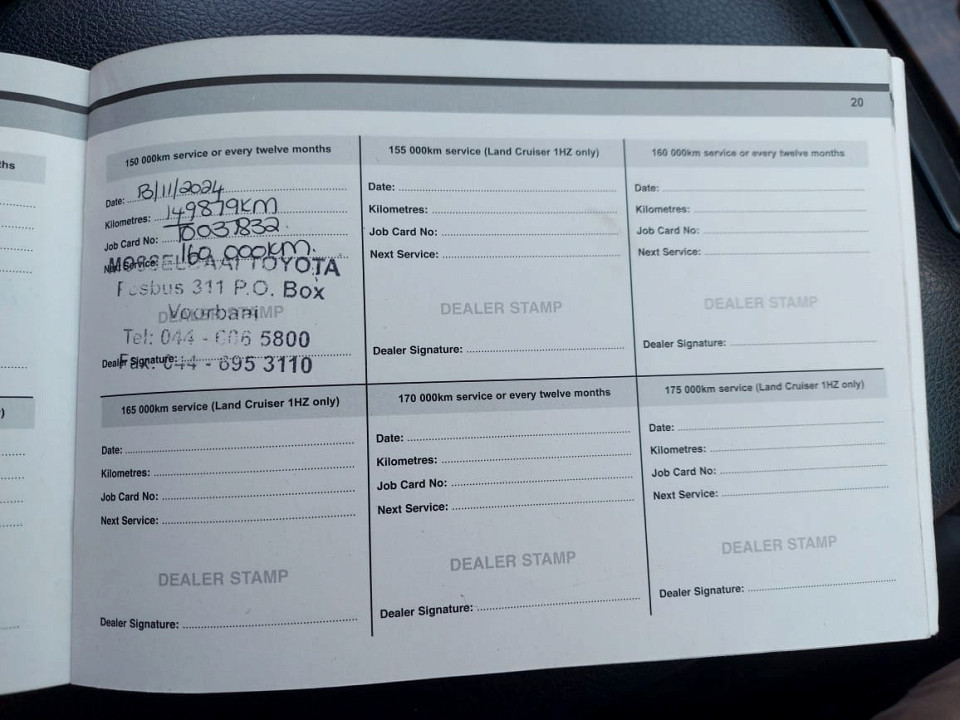 20
ths
150 000km service or every twelve months
Date: 13/11/2024
Kilometres: 149879KM
Job Card No: 10031832
Next Service: 160 000KM.
MOSSELBAAI TOYOTA
Posbus 311 P.O. Box
Voorbaai
DEALER STAMP
Tel: 044 - 5800
Dealer Signature:
Fax: 044 - 695 3110
155 000km service (Land Cruiser 1HZ only)
Date:
Kilometres:
Job Card No:
Next Service:
DEALER STAMP
Dealer Signature:
160 000km service or every twelve months
Date:
Kilometres:
Job Card No:
Next Service:
DEALER STAMP
Dealer Signature:
)
165 000km service (Land Cruiser 1HZ only)
Date:
Kilometres:
Job Card No:
Next Service:
DEALER STAMP
Dealer Signature:
170 000km service or every twelve months
Date:
Kilometres:
Job Card No:
Next Service:
DEALER STAMP
Dealer Signature:
175 000km service (Land Cruiser 1HZ only)
Date:
Kilometres:
Job Card No:
Next Service:
DEALER STAMP
Dealer Signature: